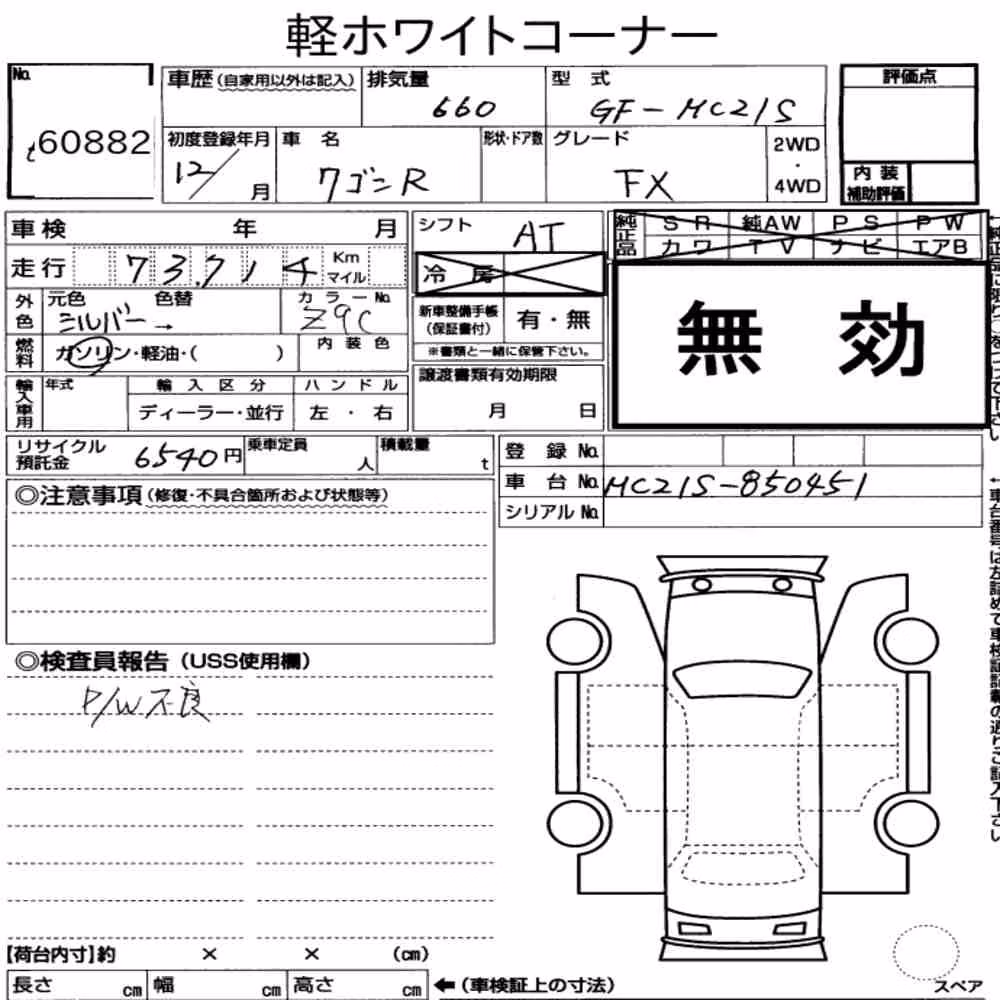 軽ホワイトコーナー
No.
60882
車歴(自家用以外は記入) 排気量 型式
660 GF-MC21S
初度登録年月 車名 形状・ドア数 グレード
12/ 月 ワゴンR FX
2WD
・
4WD
評価点
内装
補助評価
車検 年 月
走行 73,714 Km マイル
外色 元色 色替 カラーNo.
シルバー→ Z9C
燃料 ガソリン・軽油・( ) 内装色
輸入車用 年式 輸入区分 ハンドル
ディーラー・並行 左・右
シフト AT
冷房
新車整備手帳
(保証書付) 有・無
※書類と一緒に保管下さい。
譲渡書類有効期限
月 日
純正品 SR 純AW PS PW
カワ TV ナビ エアB
無効
リサイクル
預託金 6540円 乗車定員 人 積載量 t
登録No.
車台No. MC21S-850451
シリアルNo.
◎注意事項(修復・不具合箇所および状態等)
◎検査員報告(USS使用欄)
P/W不良
[荷台内寸]約 × × (cm)
長さ cm 幅 cm 高さ cm ←(車検証上の寸法)
スペア